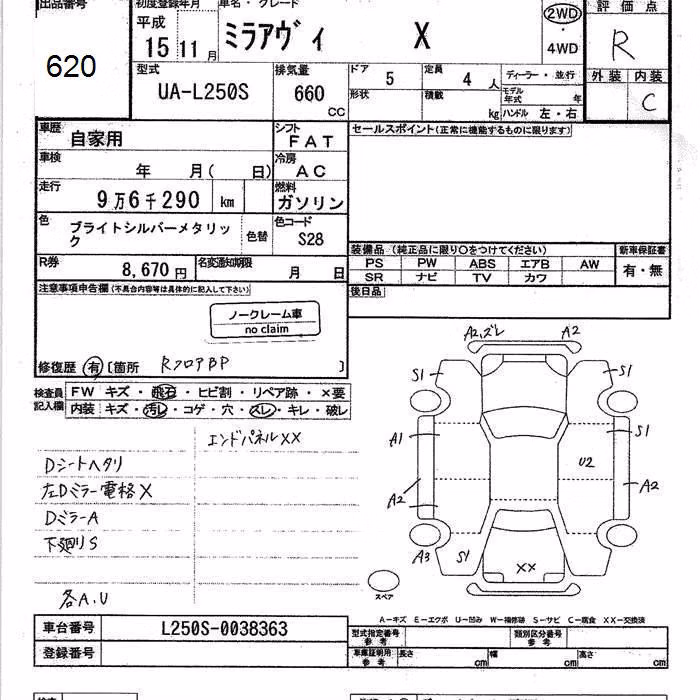 出品番号
620
初度登録年月
平成
15 11 月
車名・グレード
ミラアヴィ X
2WD
・
4WD
評価点
R
外装 内装
C
型式
UA-L250S
排気量
660
CC
ドア 5
定員 4 人
形状
積載 kg
ディーラー・並行
モデル年式 年
ハンドル 左・右
車歴 自家用
シフト FAT
車検 年 月( 日)
冷房 AC
走行 9万6千290 km
燃料 ガソリン
色 ブライトシルバーメタリック
色替
色コード S28
R券 8,670円
名変通知期限 月 日
セールスポイント(正常に機能するものに限ります)
装備品(純正品に限り○をつけてください)
PS PW ABS エアB AW
SR ナビ TV カワ
新車保証書
有・無
後日品
注意事項申告欄(不具合内容等は具体的に記入して下さい)
ノークレーム車
no claim
修復歴 有 [箇所 RフロアBP ]
検査員記入欄
FW キズ・飛石・ヒビ割・リペア跡・×要
内装 キズ・汚レ・コゲ・穴・スレ・キレ・破レ
エンドパネルXX
Dシートヘタリ
左Dミラー電格X
DミラーA
下廻りS
各A.U
A2,ズレ A2
S1 S1
A1 S1
U2
A2 A2
A3 S1
XX
スペア
A-キズ E-エクボ U-凹み W-補修跡 S-サビ C-腐食 XX-交換済
車台番号 L250S-0038363
登録番号
型式指定番号 参考
類別区分番号 参考
車庫証明用 参考
長さ cm 幅 cm 高さ cm